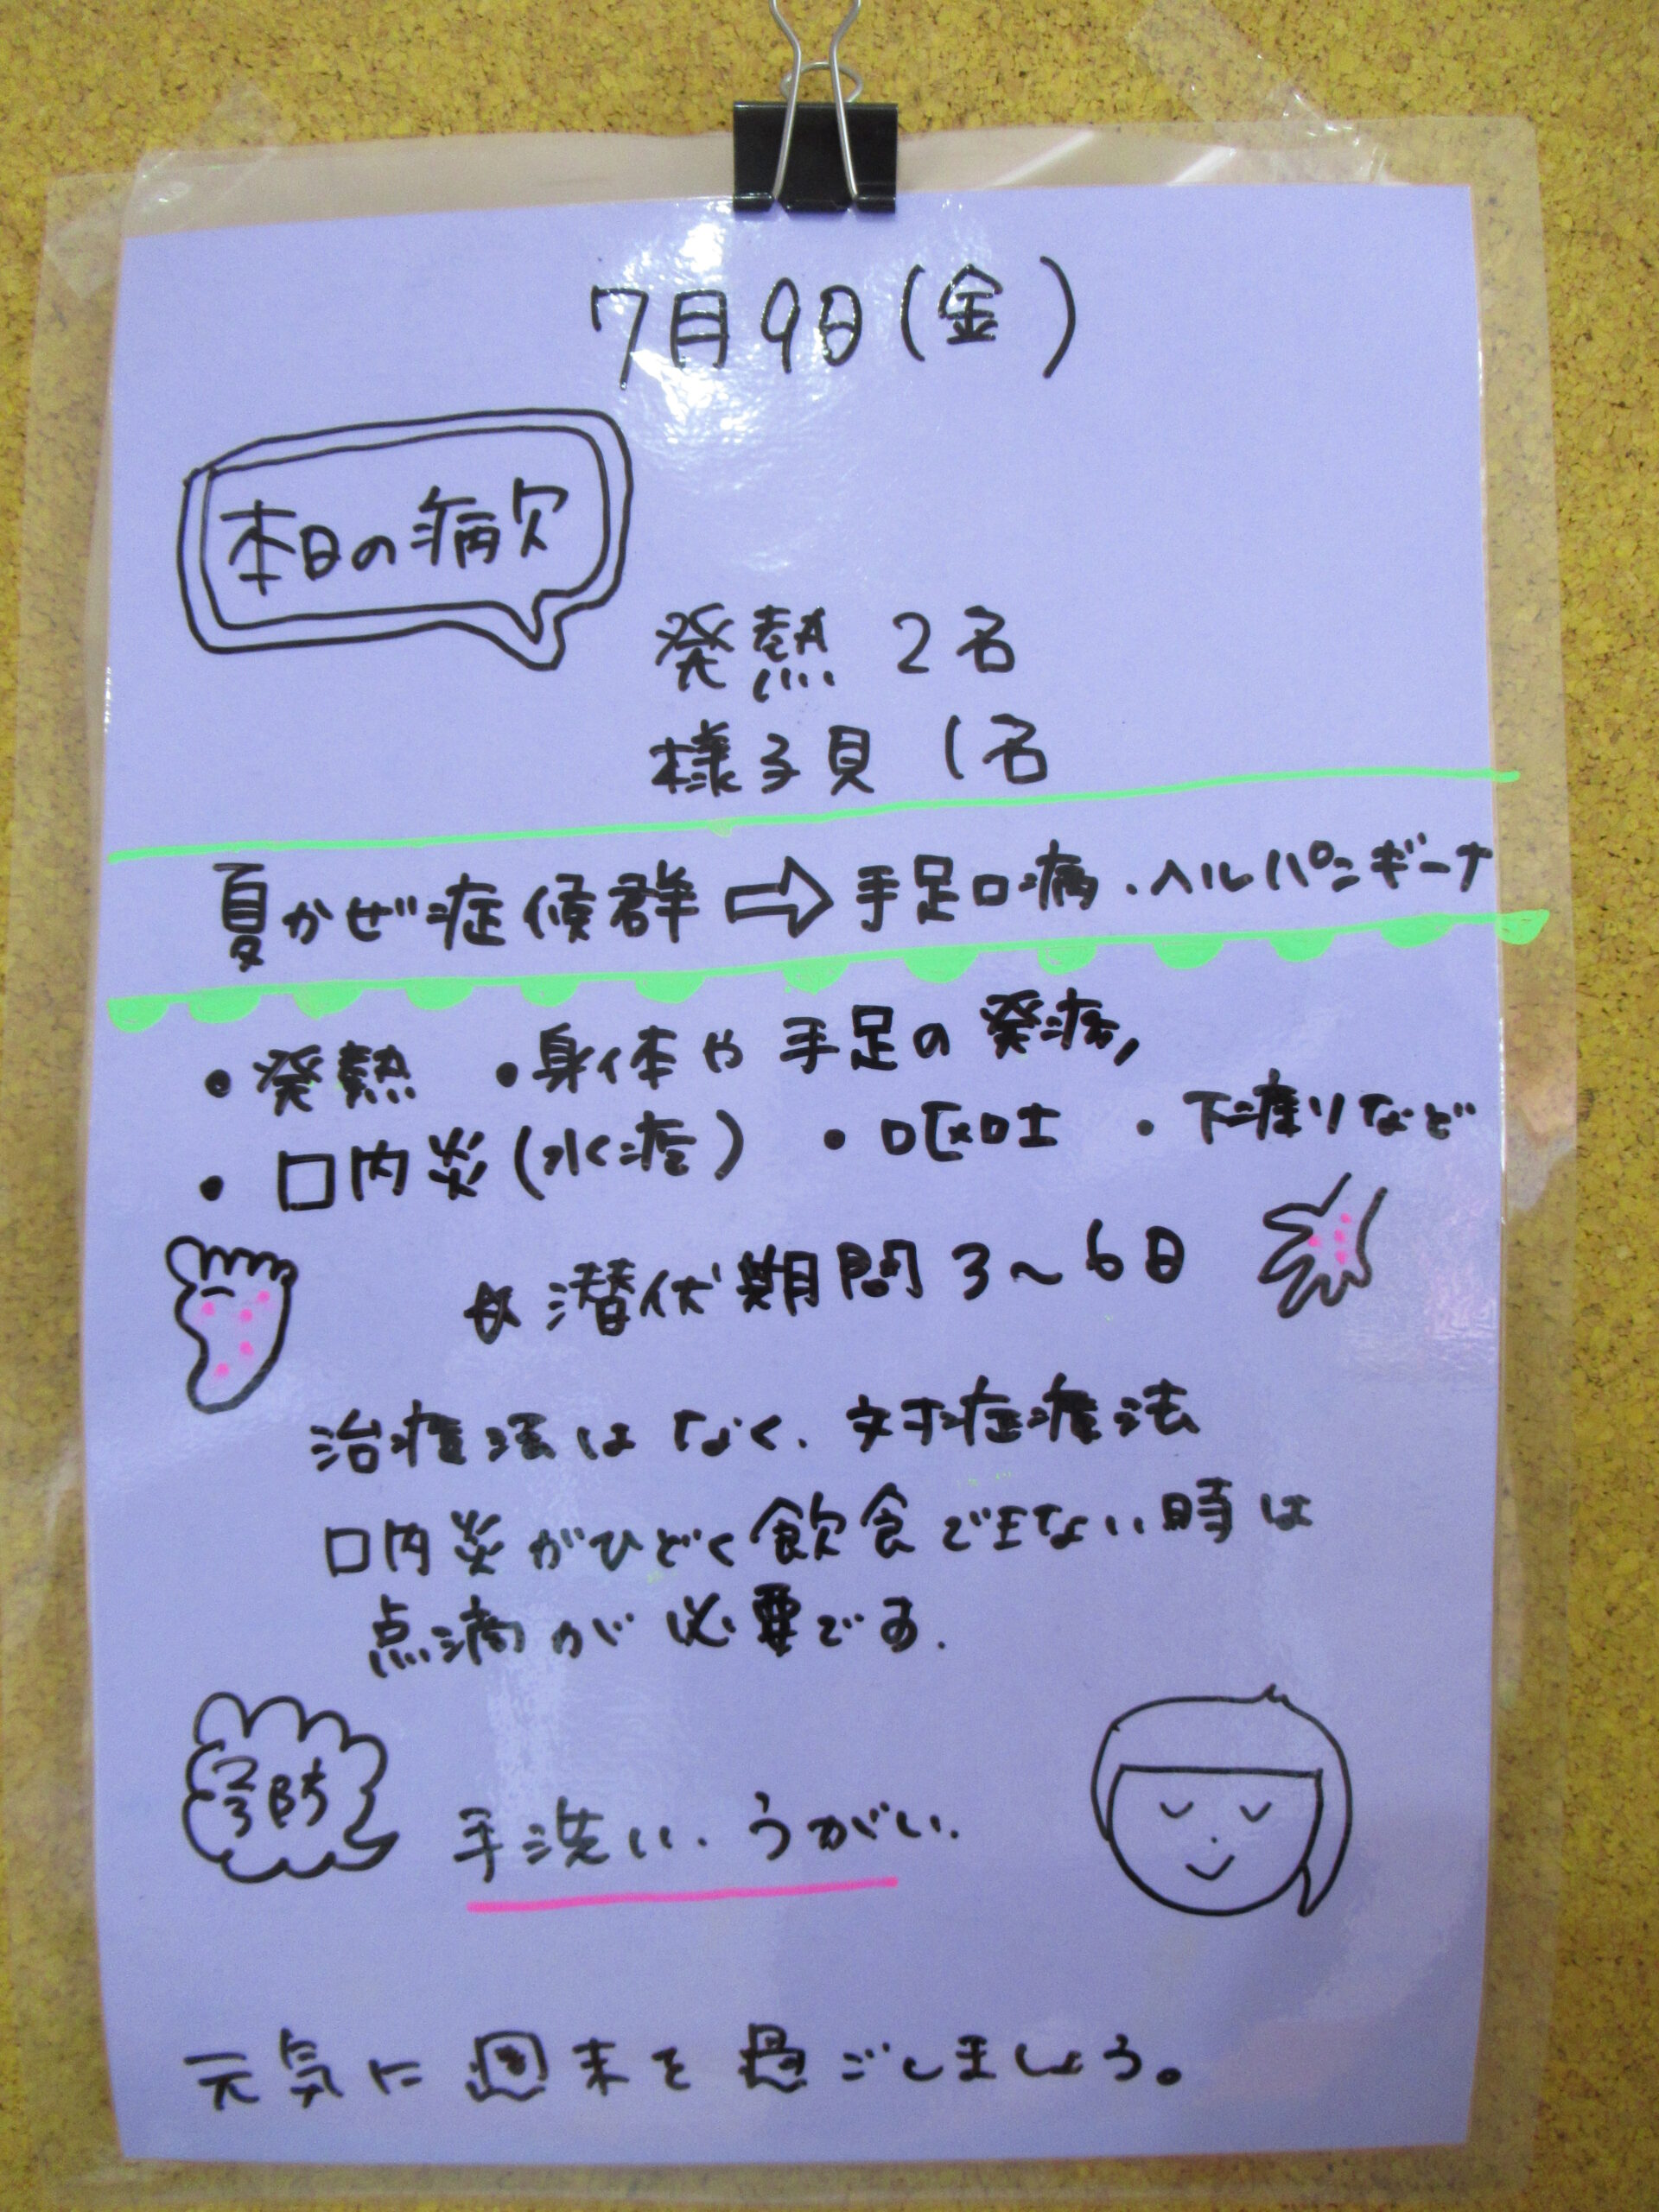 7月9日(金)
本日の病欠
発熱 2名
様子見 1名
夏かぜ症候群⇨手足口病.ヘルパンギーナ
・発熱 ・身体や手足の発疹
・口内炎(水疱) ・嘔吐 ・下痢りなど
潜伏期間3~6日
治療法はなく、対症療法
口内炎がひどく飲食できない時は
点滴が必要です.
予防
手洗い.うがい.
元気に週末を過ごしましょう。